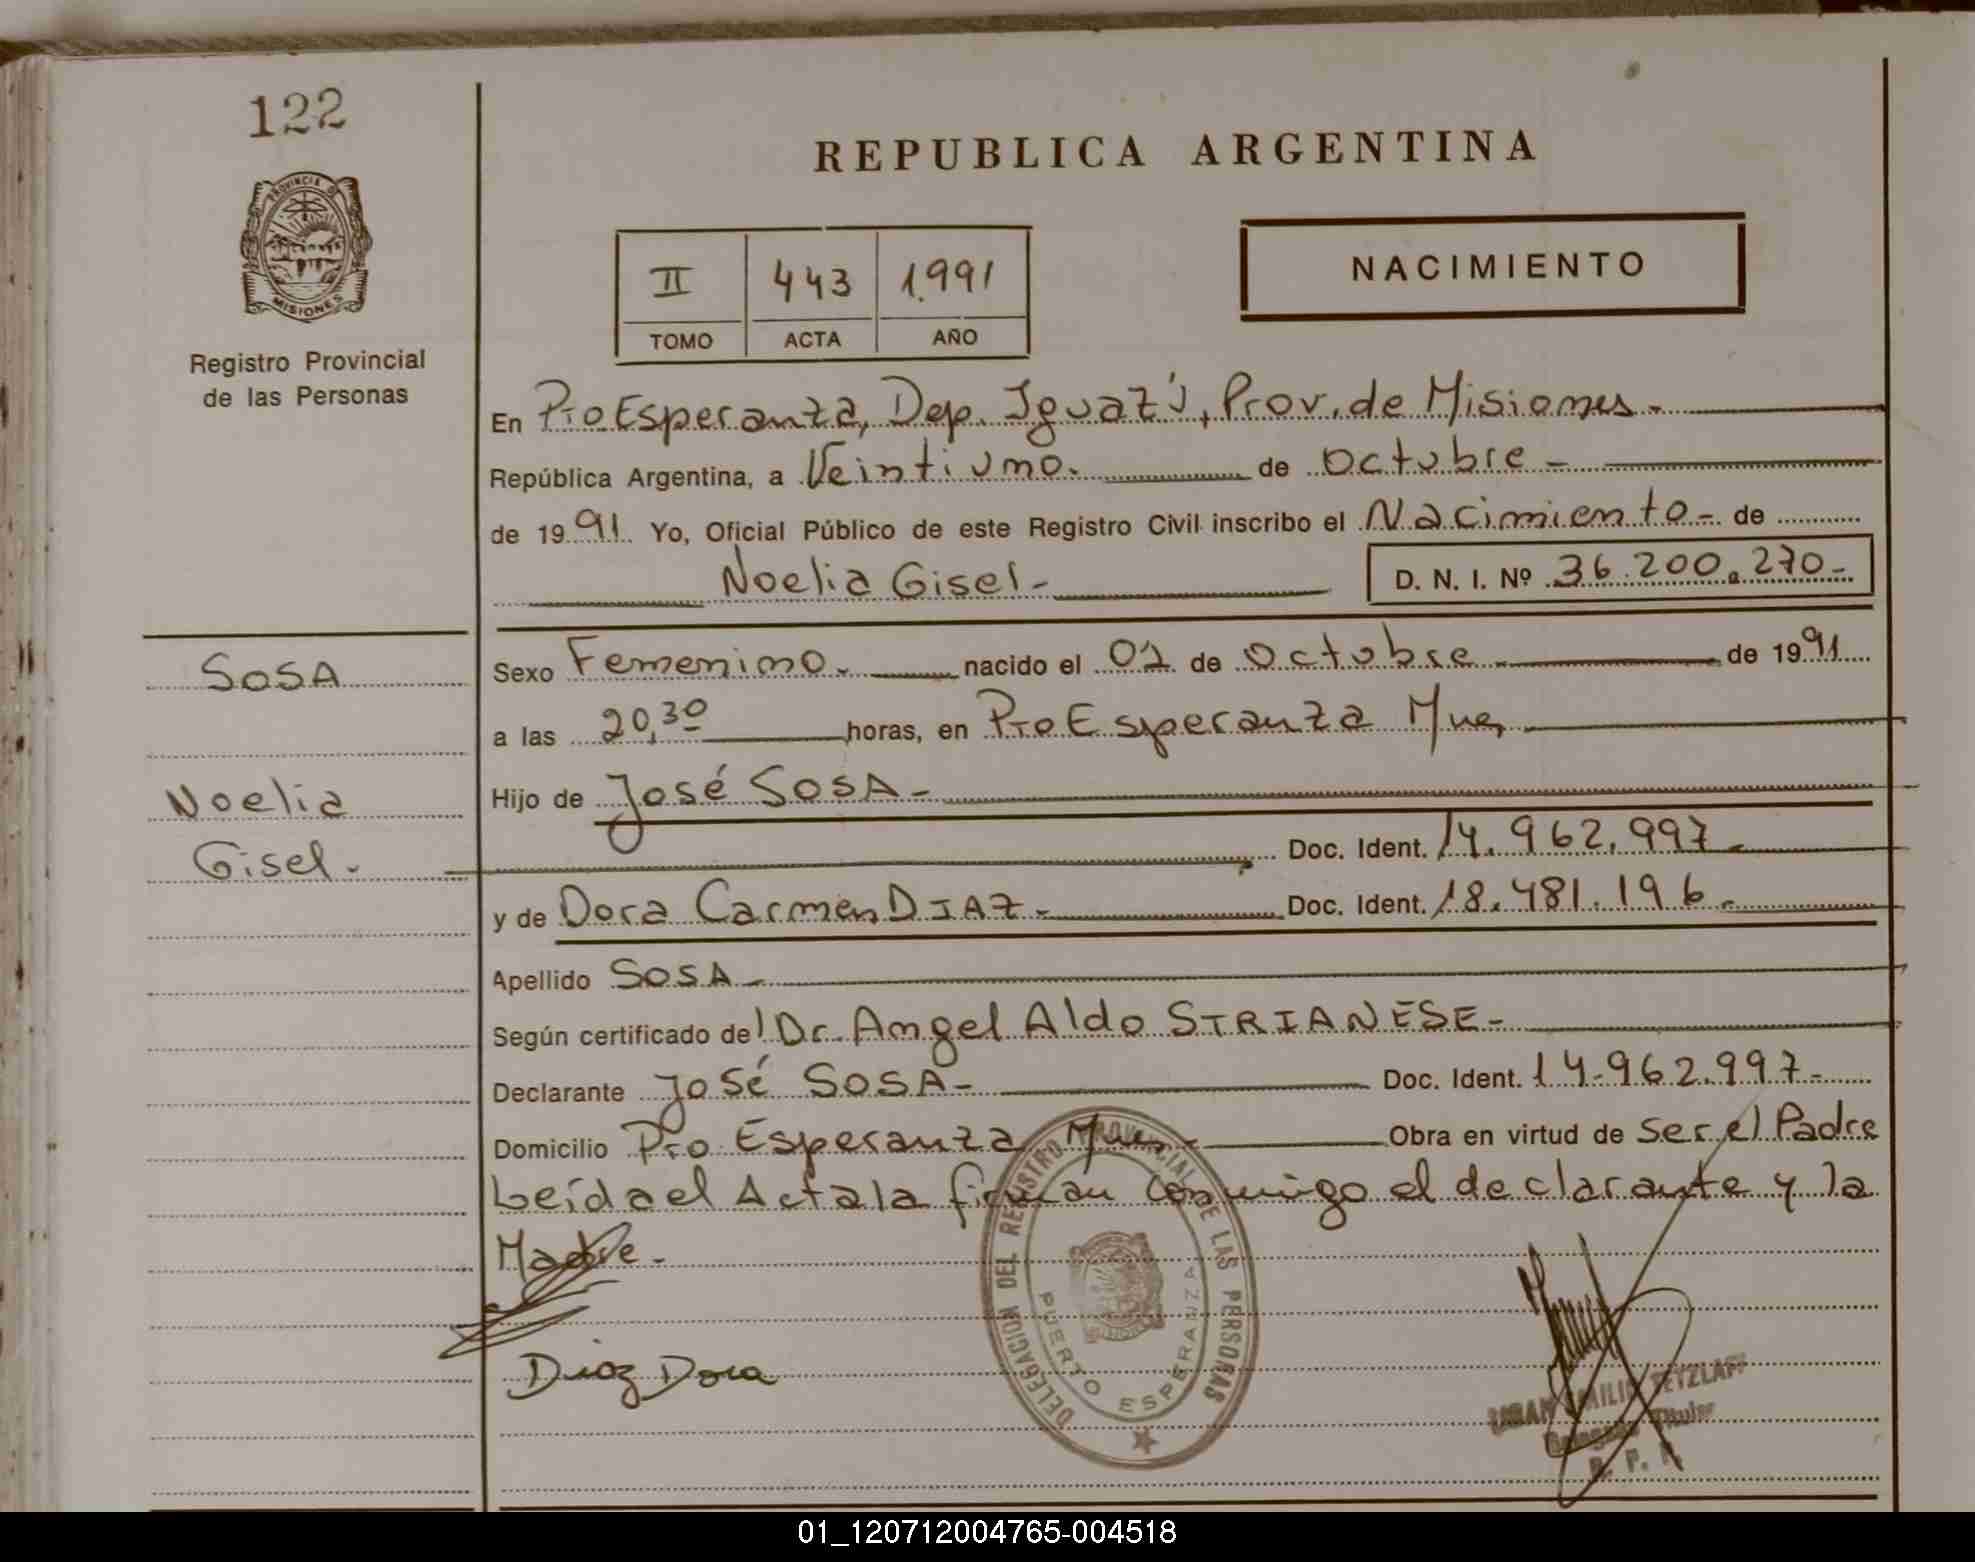 122
REPUBLICA ARGENTINA
PROVINCIA D
MISIONES
Registro Provincial
de las Personas
II 443 1.991
TOMO ACTA AÑO
NACIMIENTO
En Pto Esperanza, Dep. Iguazú, Prov. de Misiones.
República Argentina, a Veintiuno. de Octubre -
de 1991 Yo, Oficial Público de este Registro Civil inscribo el Nacimiento - de
Noelia Gisel - D. N. I. Nº 36.200.270-
SOSA
Noelia
Gisel.
Sexo Femenino. nacido el 02 de Octubre de 1991
a las 20,30 horas, en Pto Esperanza Mnes
Hijo de José SOSA -
Doc. Ident. 14.962.997-
y de Dora Carmen DIAZ - Doc. Ident. 18.481.196.
Apellido SOSA -
Según certificado del Dr. Angel Aldo STRIANESE -
Declarante José SOSA - Doc. Ident. 14.962.997-
Domicilio Pto Esperanza Mnes - Obra en virtud de ser el Padre
Leída el Acta la firman conmigo el declarante y la
Madre -
Diaz Dora
DELEGACION DEL REGISTRO PROVINCIAL DE LAS PERSONAS
PUERTO ESPERANZA
TETZLAFF
Titular
01_120712004765-004518